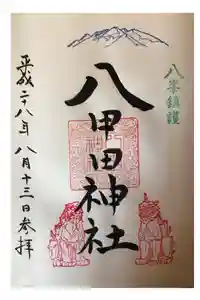 八峯鎮護
八甲田神社
平成二十八年八月十三日参拝